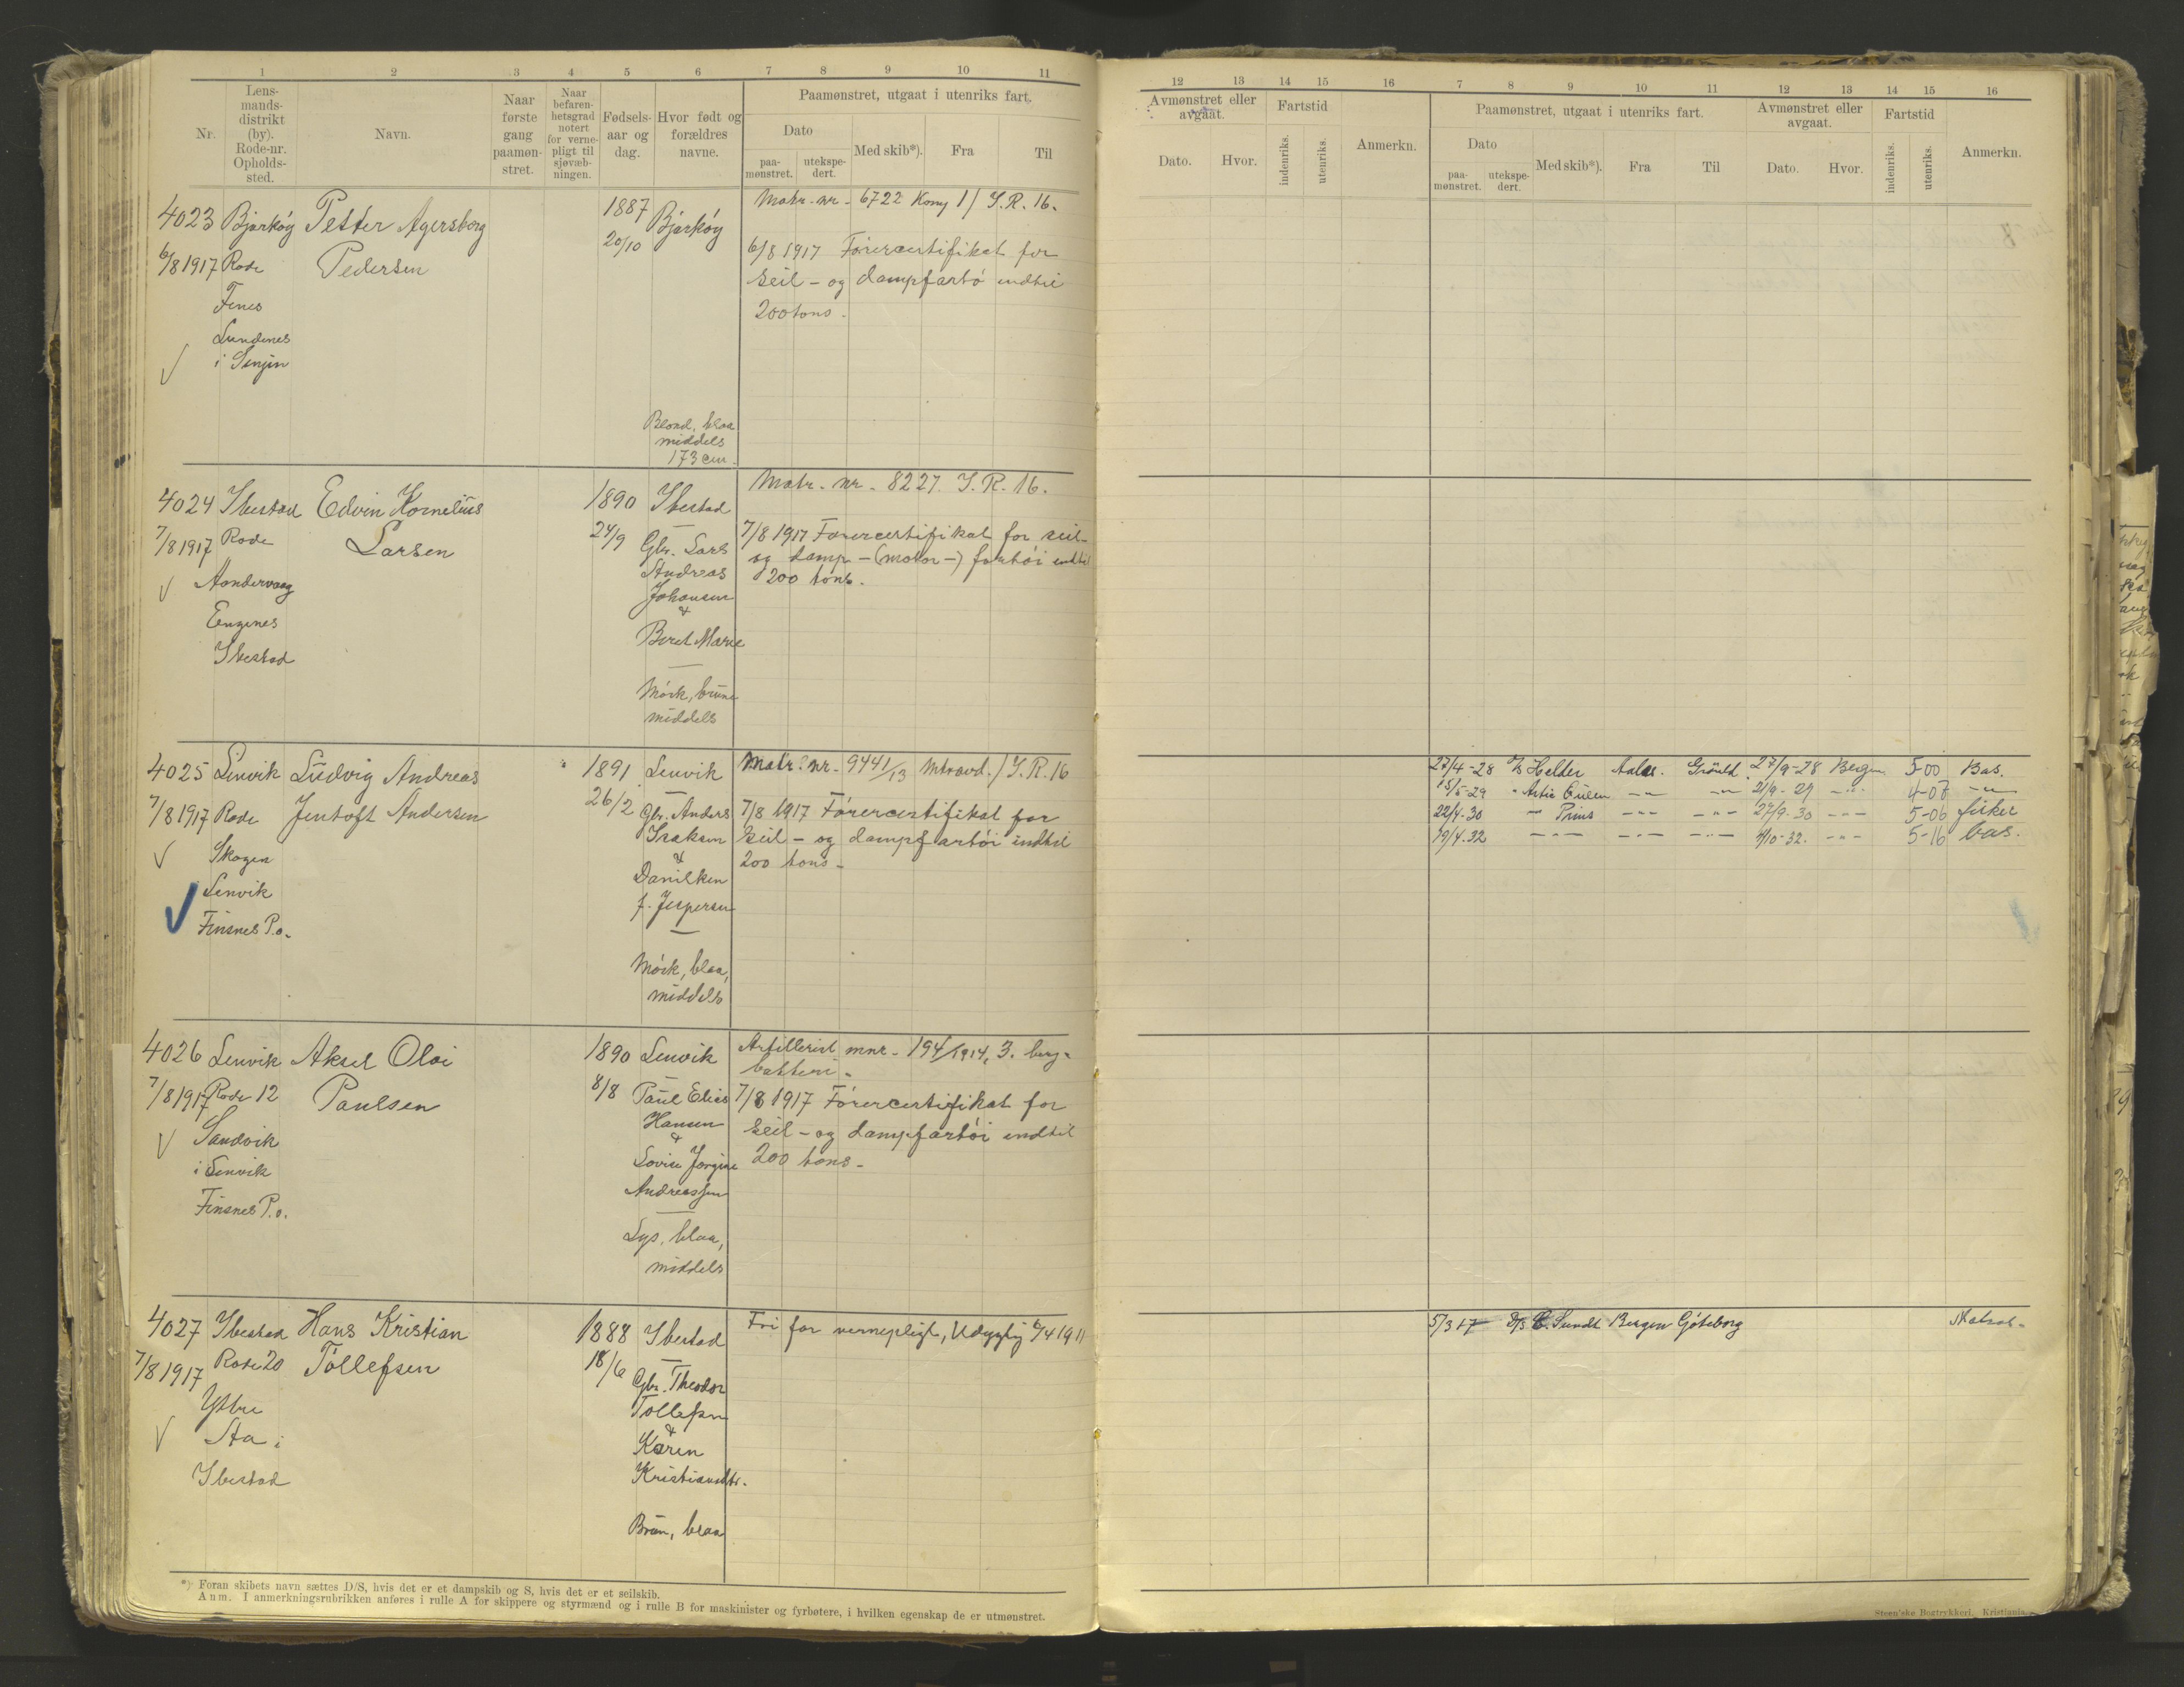 1 2 3 4 5 6 7 8 9 10 11
Nr.
Lens-
mands-
distrikt
(by).
Rode-nr.
Opholds-
sted.
Navn.
Naar
første
gang
paamøn-
stret.
Naar
befaren-
hetsgrad
notert
for verne-
pligt til
sjøvæb-
ningen.
Fødsels-
aar og
dag.
Hvor født og
forældres
navne.
Paamønstret, utgaat i utenriks fart.
Dato
paa-
mønstret.
utekspe-
dert.
Med skib*).
Fra
Til
4023 Bjarkøy Petter Agersborg 1887 Bjarkøy Matr. nr. 6722 Komp 1/ I.R. 16.
6/8 1917 Rode Pedersen 20/10 6/8 1917 Førercertifikat for
Fenes seil - og dampfartø indtil
Lundenes 200 tons.
i Senjen
Blond, blaa
middels
173 cm.
4024 Ibestad Edvin Kornelius 1890 Ibestad Matr. nr. 8227. I.R. 16.
7/8 1917 Rode Larsen 24/9 Gbr. Lars 7/8 1917 Førercertifikat for seil-
Andreas og damp - (motor -) fartøi indtil
Johansen 200 tons.
Engenes &
Ibestad Beret Marie
Mørk, brune
middels
4025 Lenvik Ludvig Andreas 1891 Lenvik Matr. nr. 9441/13 Mtravd. / I.R. 16
7/8 1917 Rode Jentoft Andersen 26/2 Gbr. Anders 7/8 1917 Førercertifikat for
Skogen Isaksen seil - og dampfartøi indtil
Lenvik & 200 tons -
Finsnes P.o. Danilken
f. Jespersen
Mørk, blaa,
middels
4026 Lenvik Aksel Olai 1890 Lenvik Artillerist mnr. 194/1914, 3. berg-
batteri -
7/8 1917 Rode 12 Paulsen 8/8 Paul Elias 7/8 1917 Førercertifikat for
Sandvik Hansen seil - og dampfartøi indtil
i Lenvik & 200 tons -
Finsnes P.o. Lovise Jorgine
Andreassen
Lys, blaa,
middels
4027 Ibestad Hans Kristian 1888 Ibestad Fri for vernepligt, Udygtig 6/4 1911
7/8 1917 Rode 20 Tollefsen 18/6 Gbr. Theodor
Ytre Tollefsen
Aa i &
Ibestad Karen
Kristiansdtr.
Brun, blaa
*) Foran skibets navn sættes D/S, hvis det er et dampskib og S, hvis det er et seilskib.
Anm. I anmerkningsrubrikken anføres i rulle A for skippere og styrmænd og i rulle B for maskinister og fyrbøtere, i hvilken egenskap de er utmønstret.
12 13 14 15 16 7 8 9 10 11 12 13 14 15 16
Avmønstret eller
avgaat.
Dato. Hvor.
Fartstid
indenriks.
utenriks.
Anmerkn.
Paamønstret, utgaat i utenriks fart.
Dato
paa-
mønstret.
utekspe-
dert.
Med skib*).
Fra
Til
Avmønstret eller
avgaat.
Dato. Hvor.
Fartstid
indenriks.
utenriks.
Anmerkn.
27/4-28 Helder Aales. Grønld. 27/9-28 Bergen 5-00 Bas.
15/5-29 21/9-29 -"- 4-07 -"-
22/4-30 Prins -"- -"- 27/9-30 -"- 5-06 fisker
19/4-32 -"- -"- -"- 4/10-32. -"- 5-16 bas.
5/3 17 D/S C. Sundt Bergen Gøteborg Matros.
Steen'ske Bogtrykkeri, Kristiania.